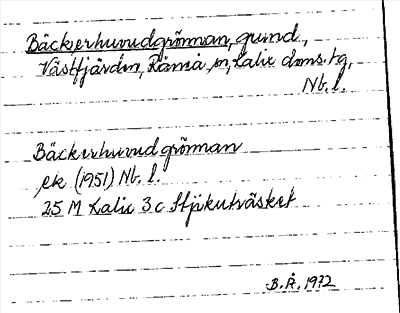 Bäckerhuvudgrönnan, grund,
Västfjärden, Råneå sn, Kalix doms. tg,
Nb. l.
Bäckerhuvudgrönnan
ek (1951) Nb. l.
25 M Kalix 3 c Stjikuträsket
B. Å. 1972